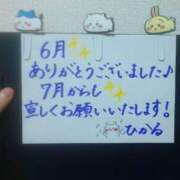 6月✨
ありがとうございました♪
7月からも
宜しくお願いいたします!
ひかる